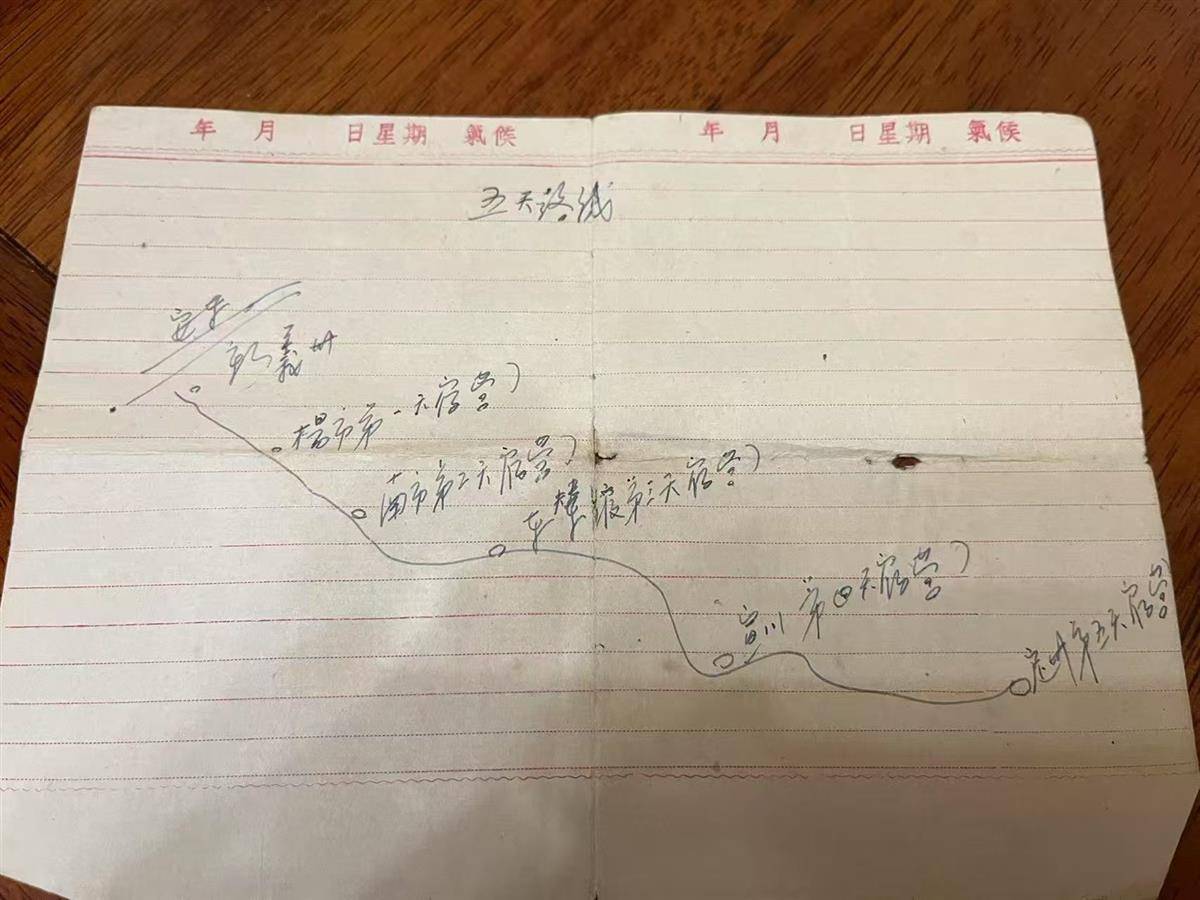 年 月 日星期 氣候 年 月 日星期 氣候
五天路线
安東
新義州
楊市第一天宿营)
南市第二天宿营)
车輦館第三天宿营)
宣川 第四天宿营)
定州第五天宿营